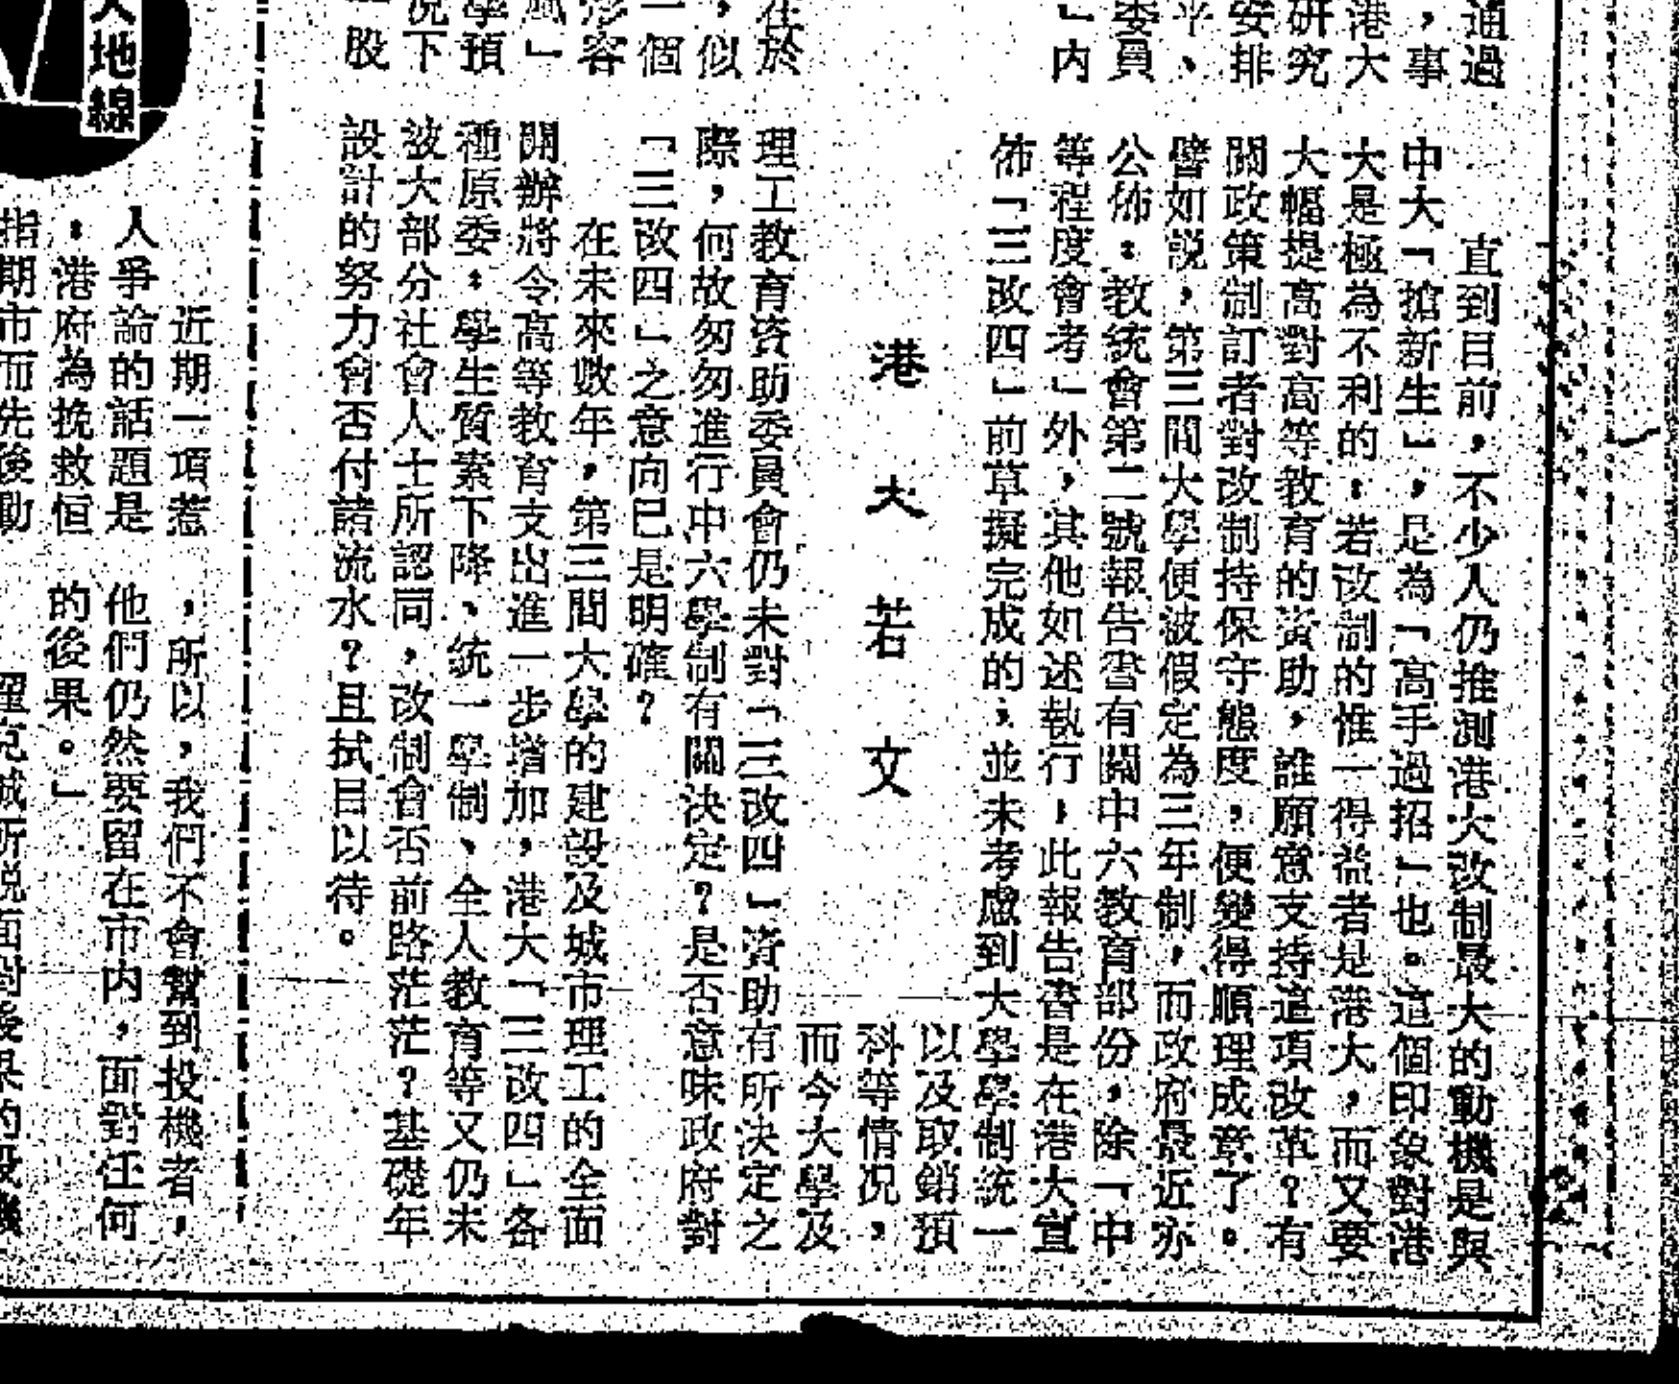 通過
，事
港大
研究
安排
平、
委員
」內
直到目前，不少人仍推測港大改制最大的動機是與
中大「搶新生」，是為「高手過招」也。這個印象對港
大是極為不利的；若改制的惟一得益者是港大，而又要
大幅提高對高等教育的資助，誰願意支持這項改革？有
關政策制訂者對改制持保守態度，便變得順理成章了。
譬如説，第三間大學便被假定為三年制，而政府最近亦
公佈：教統會第二號報告書有關中六教育部份，除「中
等程度會考」外，其他如述執行，此報告書是在港大宣
佈「三改四」前草擬完成的，並未考慮到大學學制統一
以及取銷預
科等情況，
而今大學及
港大若文
在於
，似
一個
客
」
學預
況下
股
理工教育資助委員會仍未對「三改四」資助有所決定之
際，何故匆匆進行中六學制有關決定？是否意味政府對
「三改四」之意向已是明確？
在未來數年，第三間大學的建設及城市理工的全面
開辦將令高等教育支出進一步增加，港大「三改四」各
種原委：學生質素下降、統一學制、全人教育等又仍未
被大部分社會人士所認同，改制會否前路茫茫？基礎年
設計的努力會否付諸流水？且拭目以待。
大地線
近期一項惹
人爭論的話題是
：港府為挽救恒
指期市而先後動
，所以，我們不會幫到投機者，
他們仍然要留在市內，面對任何
的後果。」
所説面對後果的投機